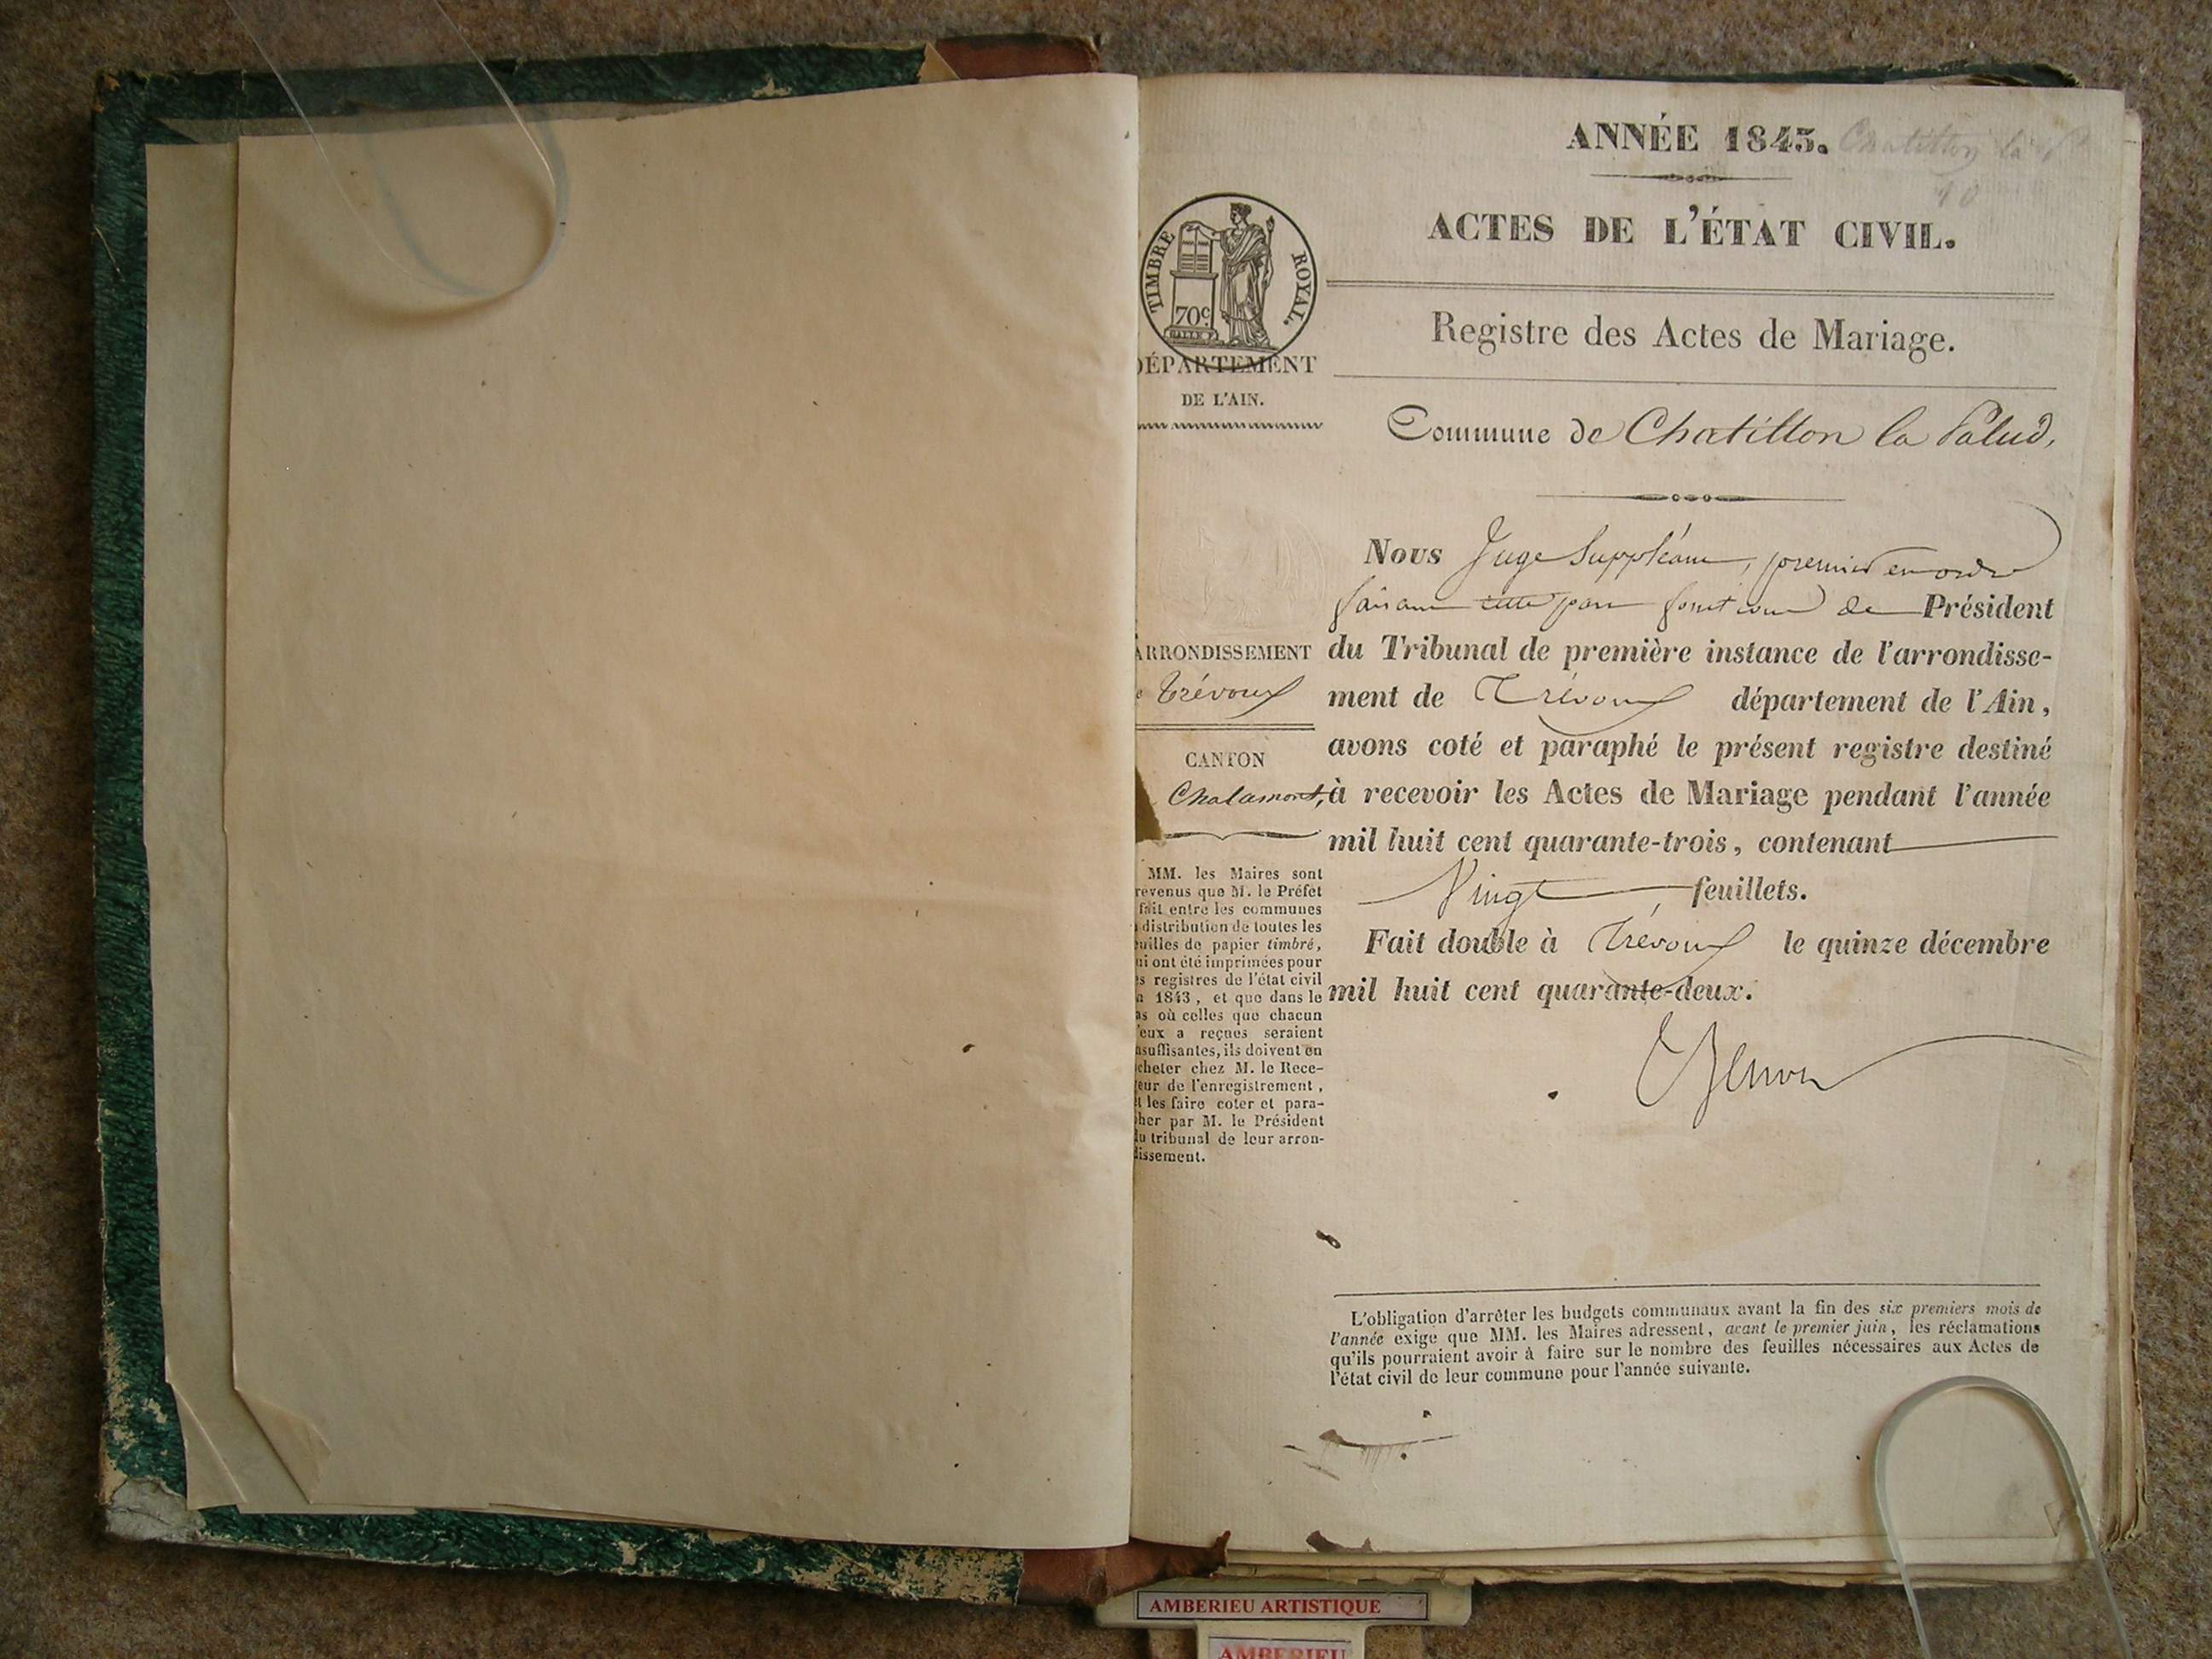 ANNÉE 1843. Chatillon la P
10
ACTES DE L'ÉTAT CIVIL.
TIMBRE ROYAL.
70c
Registre des Actes de Mariage.
DÉPARTEMENT
DE L'AIN.
Commune de Chatillon la Palud,
Nous Juge Suppléant, premier en ordre
faisant fonctions de Président
du Tribunal de première instance de l'arrondisse-
ment de Trévoux département de l'Ain,
avons coté et paraphé le présent registre destiné
à recevoir les Actes de Mariage pendant l'année
mil huit cent quarante-trois, contenant
Vingt feuillets.
Fait double à Trévoux le quinze décembre
mil huit cent quarante-deux.
ARRONDISSEMENT
e Trévoux
CANTON
Chalamont,
MM. les Maires sont
revenus que M. le Préfet
fait entre les communes
a distribution de toutes les
euilles de papier timbré,
ui ont été imprimées pour
es registres de l'état civil
n 1843, et que dans le
as où celles que chacun
'eux a reçues seraient
nsuffisantes, ils doivent en
cheter chez M. le Rece-
eur de l'enregistrement,
t les faire coter et para-
her par M. le Président
du tribunal de leur arron-
dissement.
L'obligation d'arrêter les budgets communaux avant la fin des six premiers mois de
l'année exige que MM. les Maires adressent, avant le premier juin, les réclamations
qu'ils pourraient avoir à faire sur le nombre des feuilles nécessaires aux Actes de
l'état civil de leur commune pour l'année suivante.
AMBERIEU ARTISTIQUE
AMBERIEU